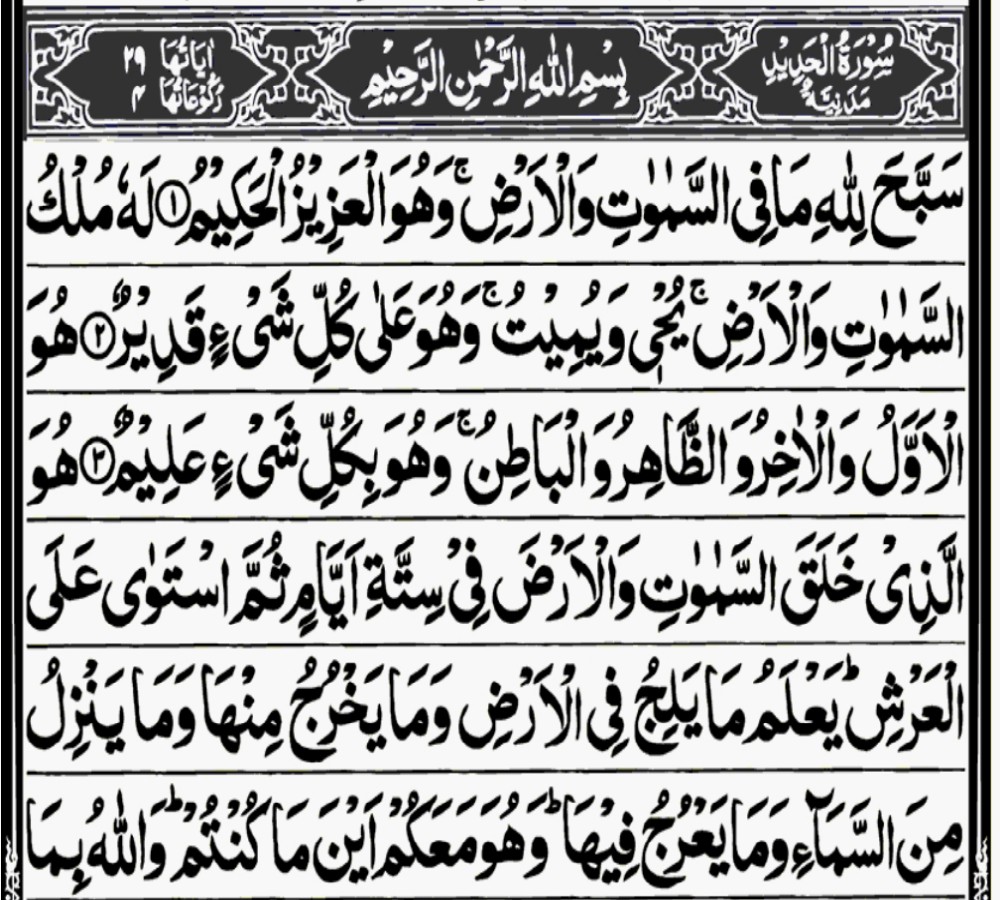 سُوْرَةُ الْحَدِيْدِ مَدَنِيَّةٌ
بِسْمِ اللهِ الرَّحْمٰنِ الرَّحِيْمِ
اٰيَاتُهَا ٢٩
رُكُوْعَاتُهَا ٤
سَبَّحَ لِلّٰهِ مَا فِى السَّمٰوٰتِ وَالْاَرْضِ ۚ وَهُوَ الْعَزِيْزُ الْحَكِيْمُ ① لَهٗ مُلْكُ
السَّمٰوٰتِ وَالْاَرْضِ ۚ يُحْىٖ وَيُمِيْتُ ۚ وَهُوَ عَلٰى كُلِّ شَىْءٍ قَدِيْرٌ ② هُوَ
الْاَوَّلُ وَالْاٰخِرُ وَ الظَّاهِرُ وَ الْبَاطِنُ ۚ وَهُوَ بِكُلِّ شَىْءٍ عَلِيْمٌ ③ هُوَ
الَّذِىْ خَلَقَ السَّمٰوٰتِ وَالْاَرْضَ فِىْ سِتَّةِ اَيَّامٍ ثُمَّ اسْتَوٰى عَلَى
الْعَرْشِ ؕ يَعْلَمُ مَا يَلِجُ فِى الْاَرْضِ وَمَا يَخْرُجُ مِنْهَا وَمَا يَنْزِلُ
مِنَ السَّمَآءِ وَمَا يَعْرُجُ فِيْهَا ؕ وَهُوَ مَعَكُمْ اَيْنَ مَا كُنْتُمْ ؕ وَاللهُ بِمَا